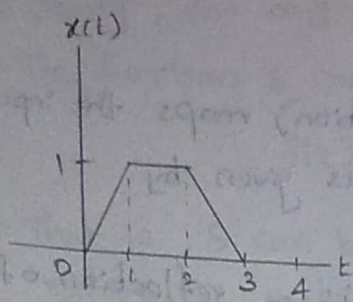 x(t)
1
0 1 2 3 4 t